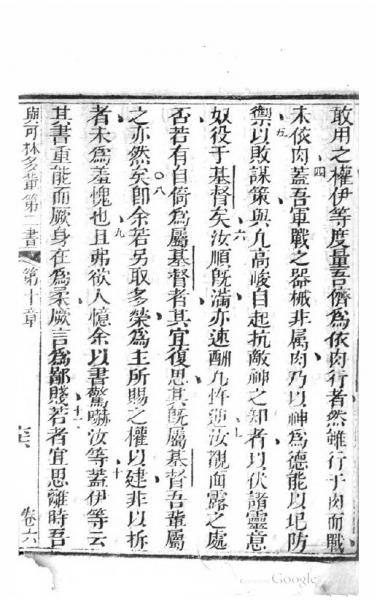 敢用之權伊等度量吾儕為依肉行者然雖行于肉而戰
四
未依肉蓋吾軍戰之器械非属肉乃以神為德能以圯防
五
禦以敗謀策與凡高峻自起抗敵神之知者以伏諸靈意
奴役于基督矣汝順既滿亦速酬凡忤逆汝觀面露之處
六
七
否若有自倚為屬基督者其宜復思其既屬基督吾輩屬
之亦然矣卽余若另取多榮為主所賜之權以建非以拆
八
者未為羞愧也且弗欲人憶余以書驚嚇汝等蓋伊等云
九
十
其書重能而厥身在為柔厥言為鄙賤若者宜思離時吾
十一
與可林多輩第二書
第十章
卷六
Google